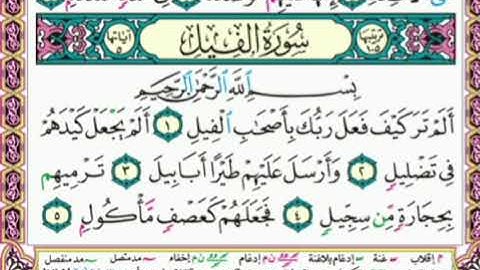 ترتيبها ١٠٥ سُورَةُ الْفِيلِ آياتها ٥
بِسْمِ اللَّهِ الرَّحْمَٰنِ الرَّحِيمِ
أَلَمْ تَرَ كَيْفَ فَعَلَ رَبُّكَ بِأَصْحَابِ الْفِيلِ ١ أَلَمْ يَجْعَلْ كَيْدَهُمْ
فِي تَضْلِيلٍ ٢ وَأَرْسَلَ عَلَيْهِمْ طَيْرًا أَبَابِيلَ ٣ تَرْمِيهِم
بِحِجَارَةٍ مِّن سِجِّيلٍ ٤ فَجَعَلَهُمْ كَعَصْفٍ مَّأْكُولٍ ٥
م إقلاب غنة إدغام بلاغنة ن م إدغام ن م إخفاء مد متصل مد منفصل